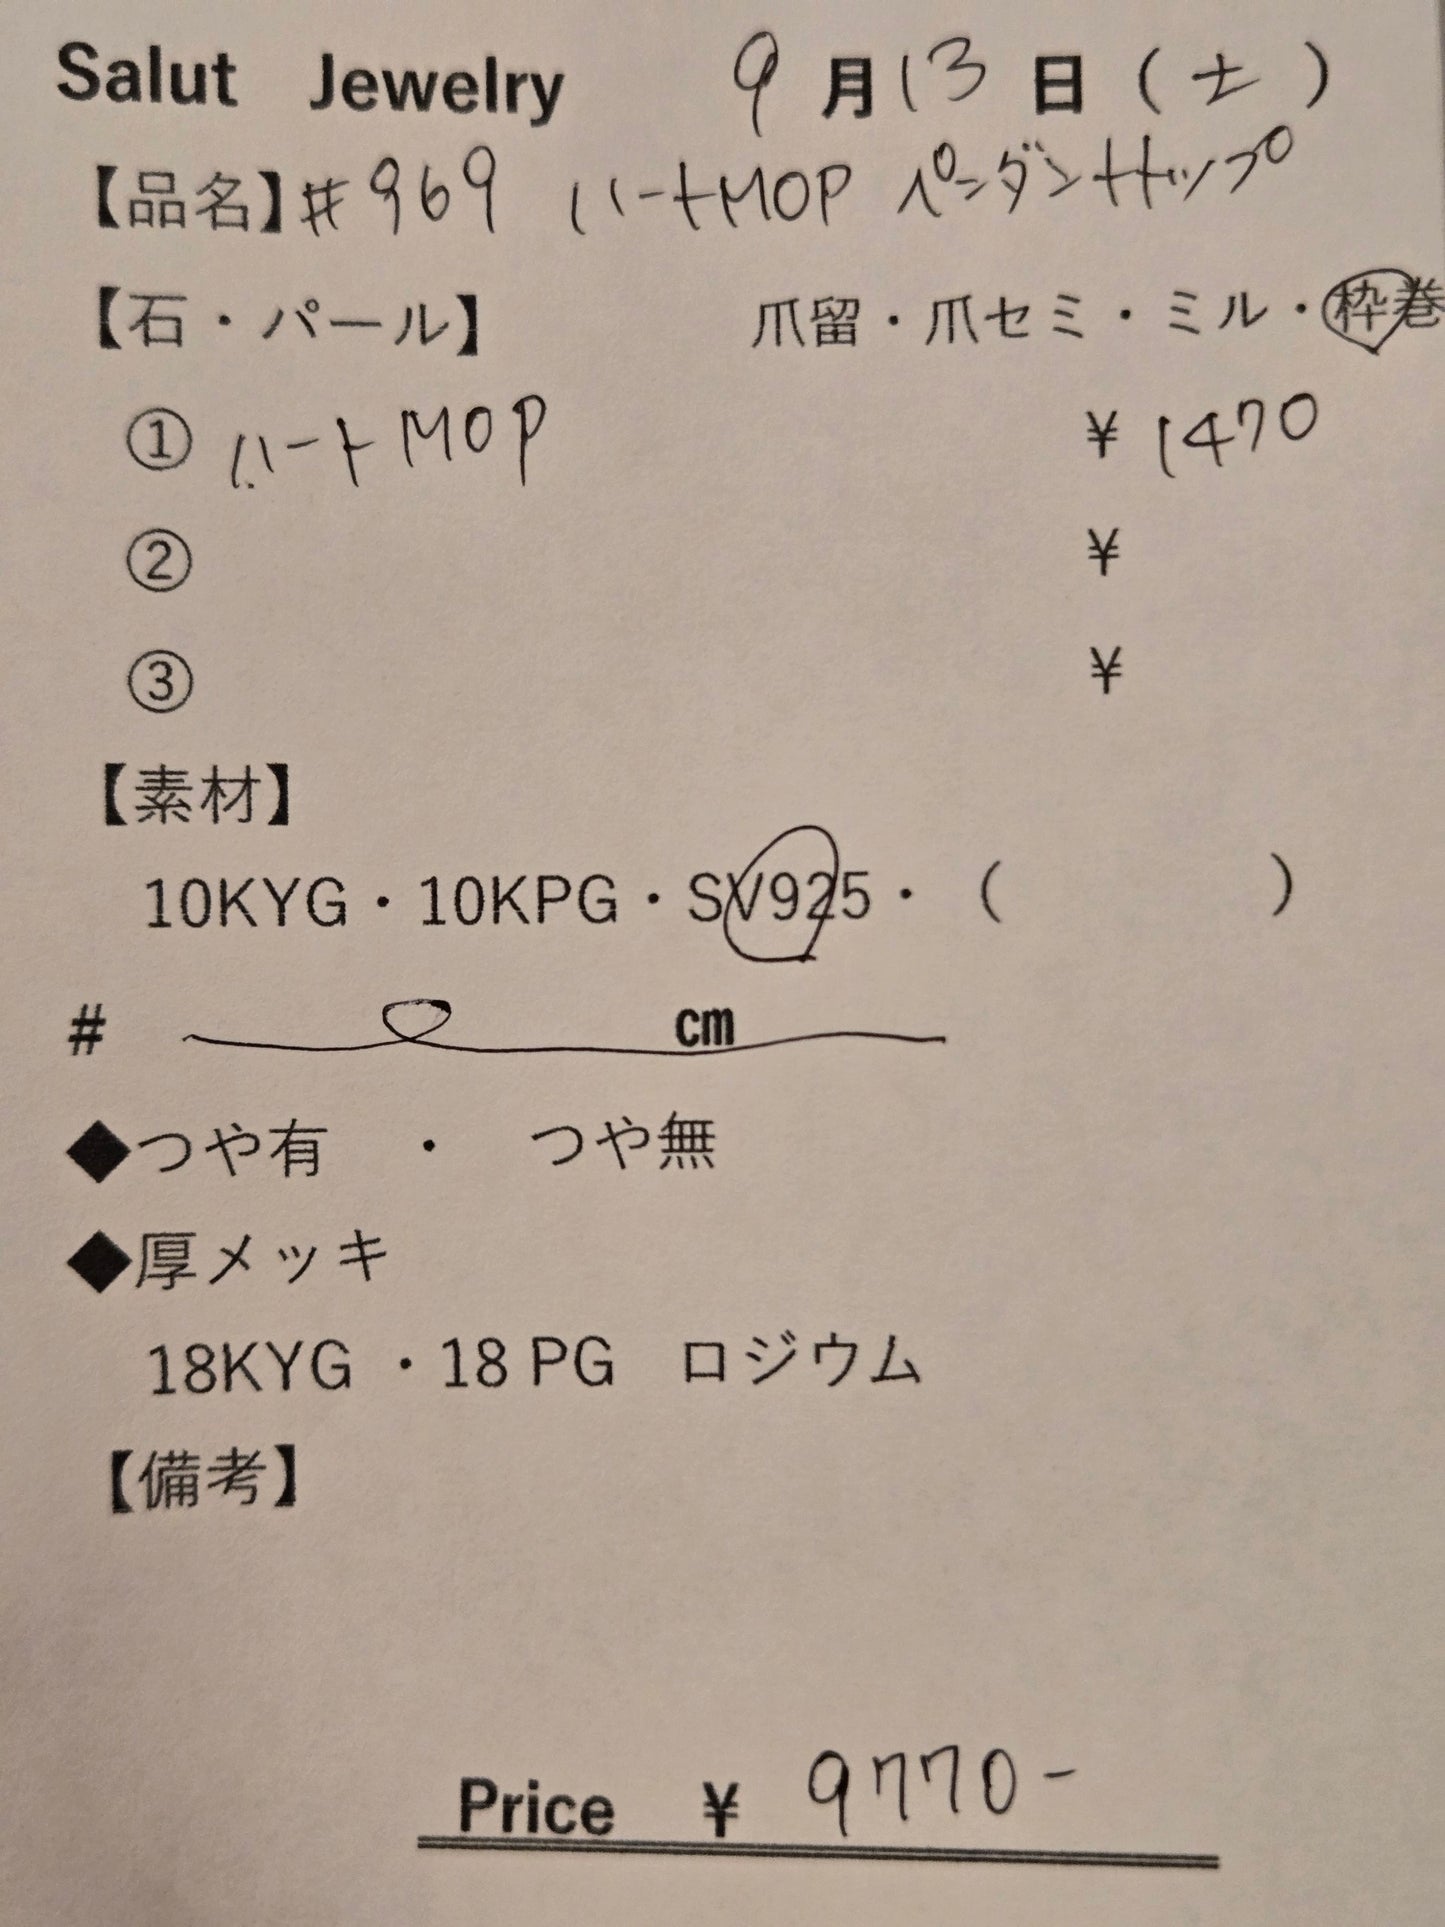 Salut Jewelry 9月13日(土)
【品名】#969 ハートMOP ペンダントトップ
【石・パール】 爪留・爪セミ・ミル・枠巻
① ハートMOP ¥1470
② ¥
③ ¥
【素材】
10KYG・10KPG・SV925・( )
# cm
◆つや有 ・ つや無
◆厚メッキ
18KYG ・18 PG ロジウム
【備考】
Price ¥ 9770-